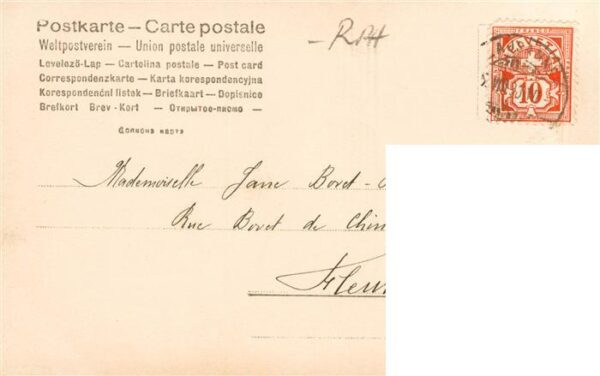 Postkarte — Carte postale
Weltpostverein — Union postale universelle
Levelező-Lap — Cartolina postale — Post card
Correspondenzkarte — Karta korespondencyjna
Korespondenční listek — Briefkaart — Dopisnice
Brefkort Brev-Kort — Открытое-письмо —
– RAH
FRANCO
HELVETIA
10
Mademoiselle Jane Bovet -
Rue Bovet de Chin
Fleur